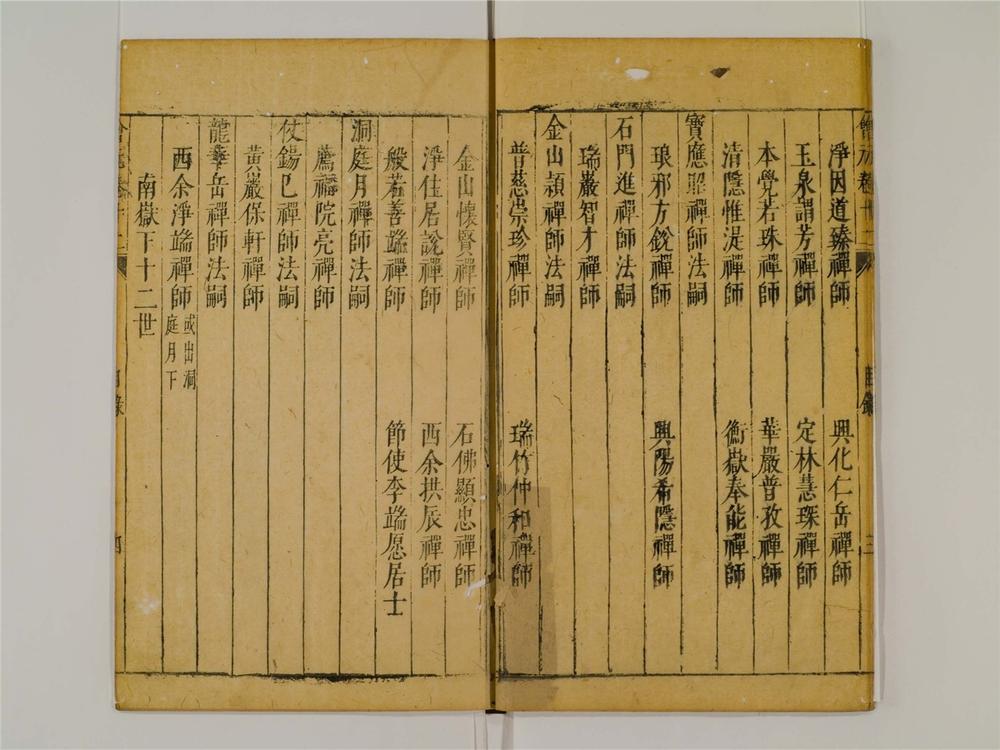 淨因道臻禪師 興化仁岳禪師
玉泉謂芳禪師 定林慧琛禪師
本覺若珠禪師 華嚴普孜禪師
清隱惟湜禪師 衡嶽奉能禪師
寶應昭禪師法嗣
琅邪方銳禪師 興陽希隱禪師
石門進禪師法嗣
瑞巖智才禪師
金山頴禪師法嗣
普慈崇珍禪師 瑞竹仲和禪師
金山懷賢禪師 石佛顯忠禪師
淨住居說禪師 西余拱辰禪師
般若善端禪師 節使李端愿居士
洞庭月禪師法嗣
薦福院亮禪師
仗錫已禪師法嗣
黃巖保軒禪師
龍華岳禪師法嗣
西余淨端禪師 或出洞庭月下
南嶽下十二世
目錄
四
目錄
三